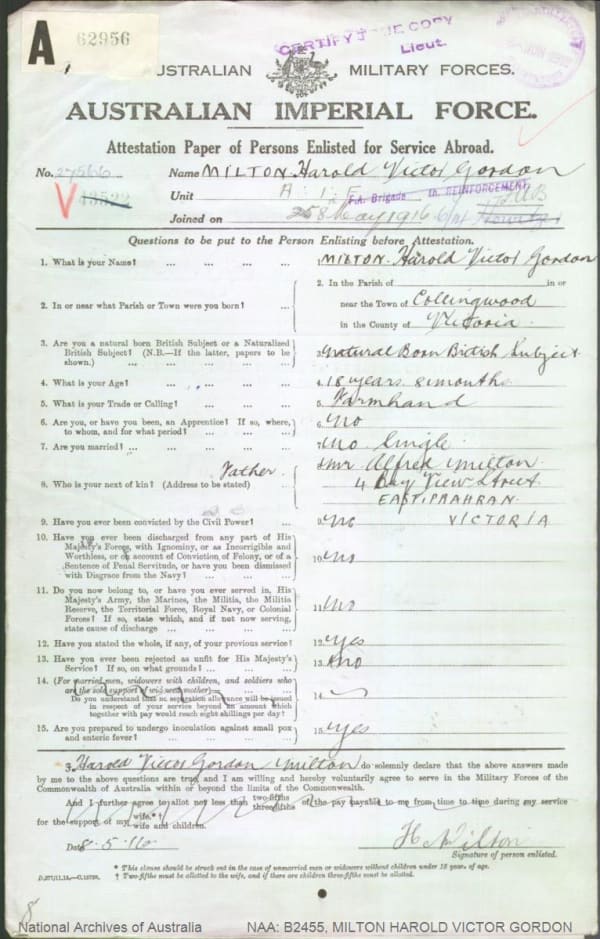 A 62956
CERTIFY TRUE COPY
Lieut.
AUSTRALIAN MILITARY FORCES.
AUSTRALIAN IMPERIAL FORCE.
Attestation Paper of Persons Enlisted for Service Abroad.
No. 27566 Name MILTON. Harold Victor Gordon
V 13522
Unit A. I. F. F.A. Brigade REINFORCEMENT
Joined on 8 May 1916 Howitzer
Questions to be put to the Person Enlisting before Attestation.
1. What is your Name? ... ... ... ... 1. MILTON. Harold Victor Gordon
2. In or near what Parish or Town were you born? ...
2. In the Parish of in or
near the Town of Collingwood
in the County of Victoria.
3. Are you a natural born British Subject or a Naturalized
British Subject? (N.B.—If the latter, papers to be
shown.) ... ... ... ... ... 3. Natural Born British Subject
4. What is your Age? ... ... ... ... 4. 18 years 8 months
5. What is your Trade or Calling? ... ... ... 5. Farmhand
6. Are you, or have you been, an Apprentice? If so, where,
to whom, and for what period? ... ... ... 6. No
7. Are you married? ... ... ... ... ... 7. No. Single
8. Who is your next of kin? (Address to be stated) ... Father. 8. Mr. Alfred Milton.
4 Bay View Street
EAST. PRAHRAN.
VICTORIA
9. Have you ever been convicted by the Civil Power? ... 9. No
10. Have you ever been discharged from any part of His
Majesty's Forces, with Ignominy, or as Incorrigible and
Worthless, or on account of Conviction of Felony, or of a
Sentence of Penal Servitude, or have you been dismissed
with Disgrace from the Navy? ... ... ... 10. No
11. Do you now belong to, or have you ever served in, His
Majesty's Army, the Marines, the Militia, the Militia
Reserve, the Territorial Force, Royal Navy, or Colonial
Forces? If so, state which, and if not now serving,
state cause of discharge ... ... ... ... 11. No
12. Have you stated the whole, if any, of your previous service? 12. Yes
13. Have you ever been rejected as unfit for His Majesty's
Service? If so, on what grounds? ... ... ... 13. No
14. (For married men, widowers with children, and soldiers who
are the sole support of widowed mother)—
Do you understand that no separation allowance will be issued
in respect of your service beyond an amount which
together with pay would reach eight shillings per day? 14.
15. Are you prepared to undergo inoculation against small pox
and enteric fever? ... ... ... ... ... 15. Yes
I, Harold Victor Gordon Milton do solemnly declare that the above answers made
by me to the above questions are true, and I am willing and hereby voluntarily agree to serve in the Military Forces of the
Commonwealth of Australia within or beyond the limits of the Commonwealth.
And I further agree to allot not less than two-fifths three-fifths of the pay payable to me from time to time during my service
for the support of my wife.*† wife and children.
Date 8.5.16 H Milton
Signature of person enlisted.
* This clause should be struck out in the case of unmarried men or widowers without children under 18 years of age.
† Two-fifths must be allotted to the wife, and if there are children three-fifths must be allotted.
8
National Archives of Australia NAA: B2455, MILTON HAROLD VICTOR GORDON